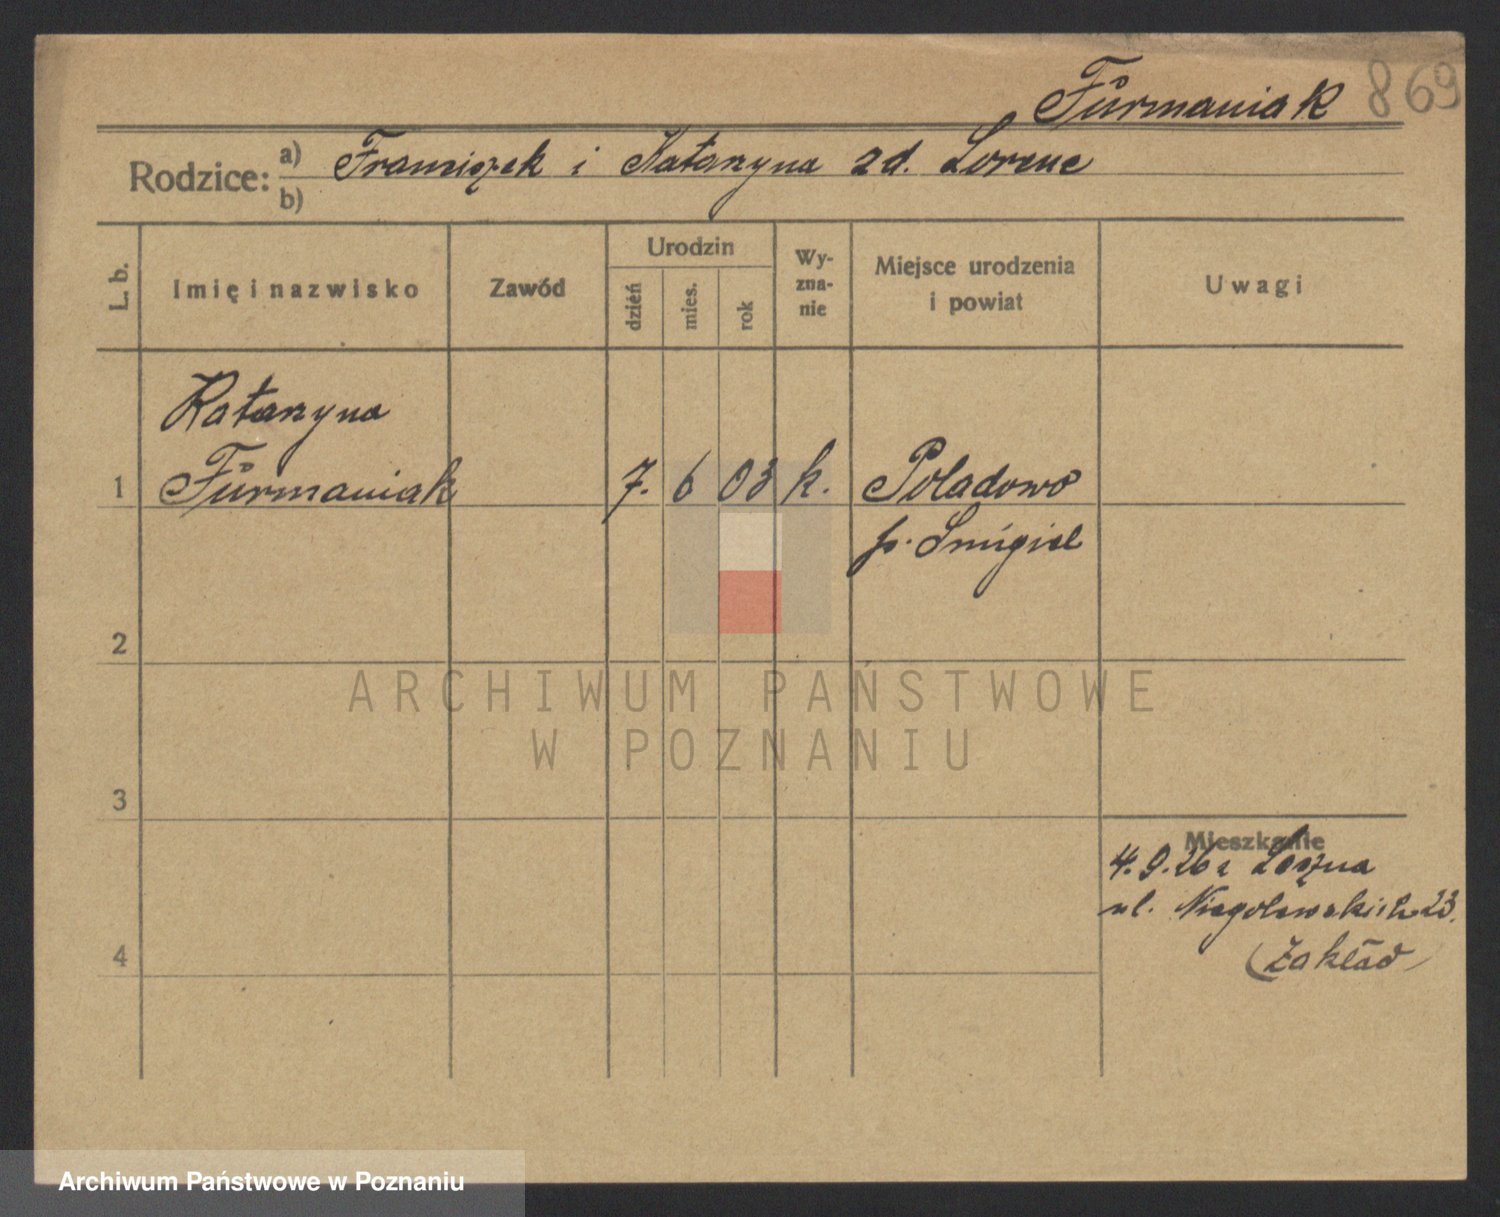 Furmaniak 869
Rodzice: a) Franciszek i Katarzyna zd. Lorenc
b)
L. b.
Imię i nazwisko
Zawód
Urodzin
dzień
mies.
rok
Wy-
zna-
nie
Miejsce urodzenia
i powiat
Uwagi
Katarzyna
1 Furmaniak 7. 6 03 k. Poladowo
p. Śmigiel
2
ARCHIWUM PAŃSTWOWE
W POZNANIU
3
Mieszkanie
4.9.26 z
ul. Niegolewskich 23.
(Zakład)
4
Archiwum Państwowe w Poznaniu